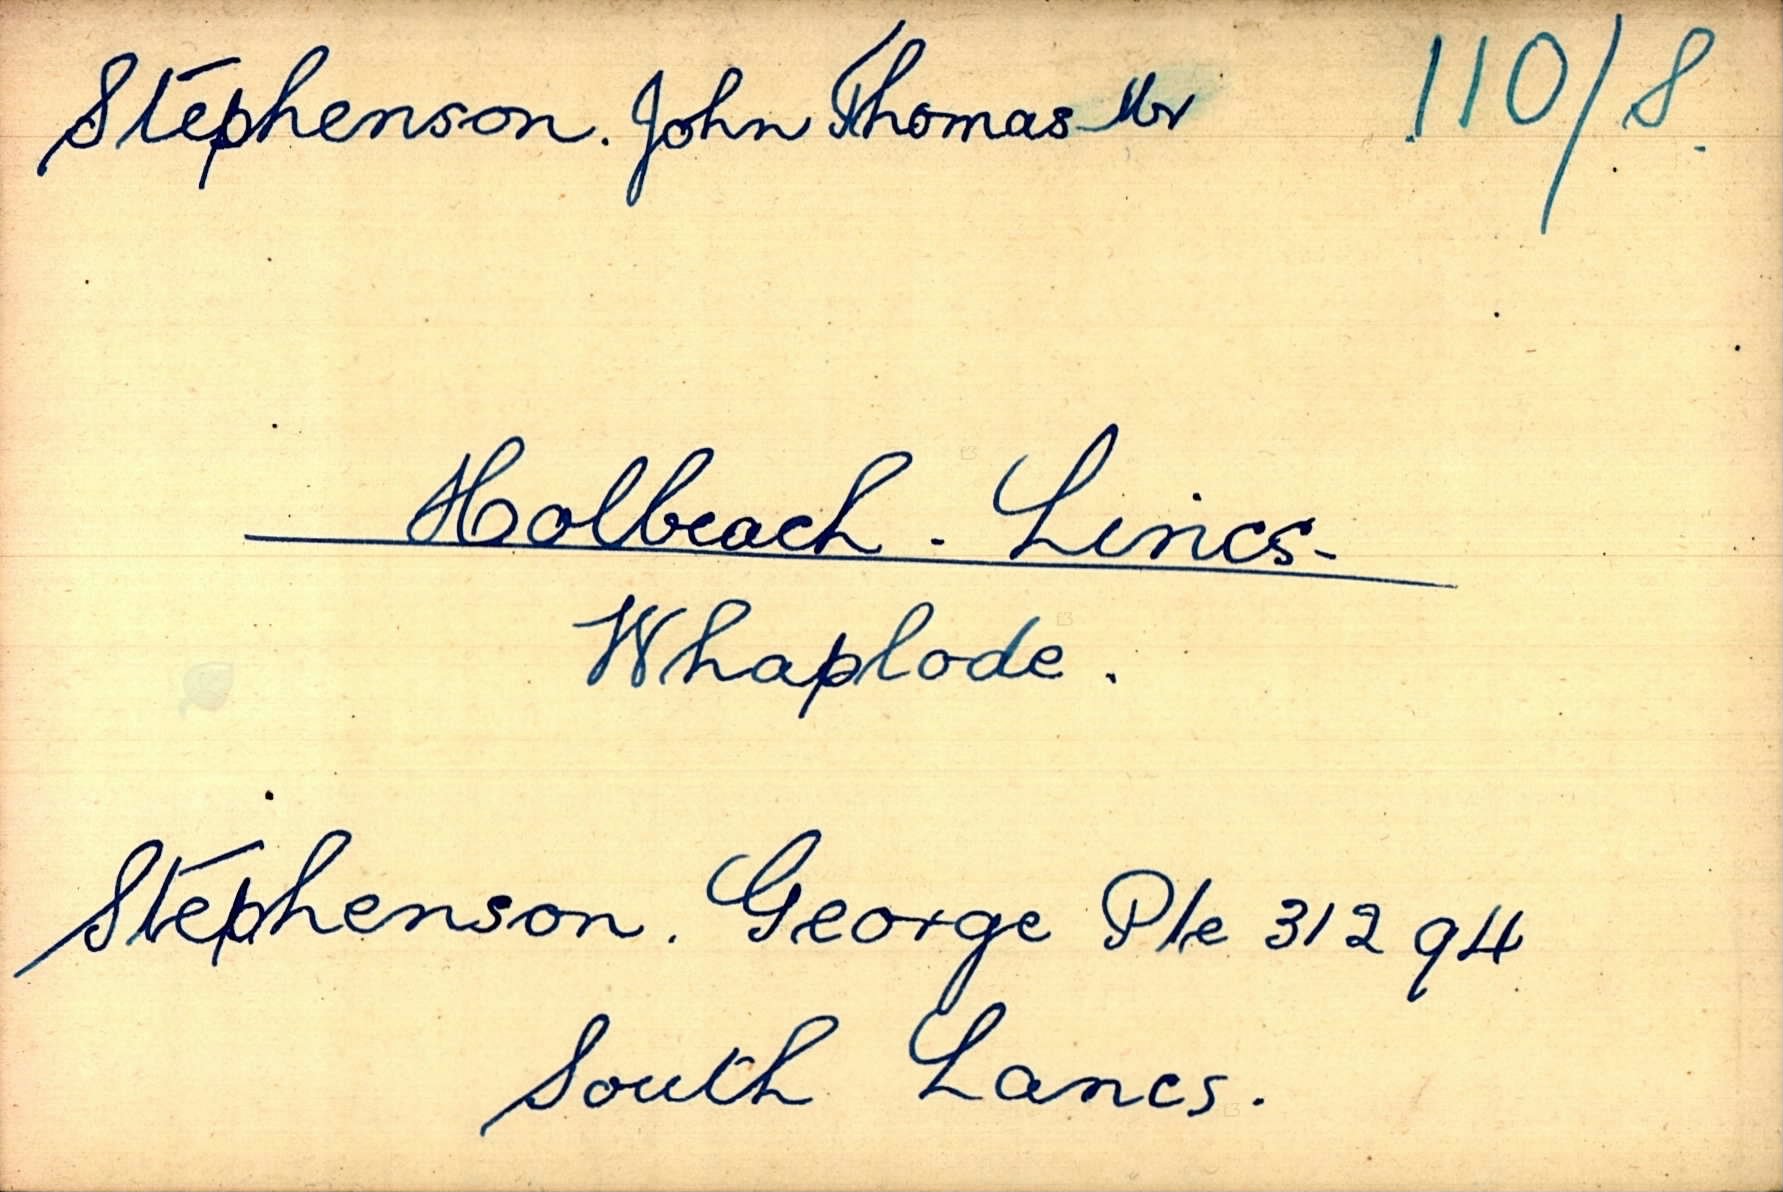 Stephenson. John Thomas Mr 110/8.
Holbeach. Lincs.
Whaplode.
Stephenson. George Pte 31294
South Lancs.